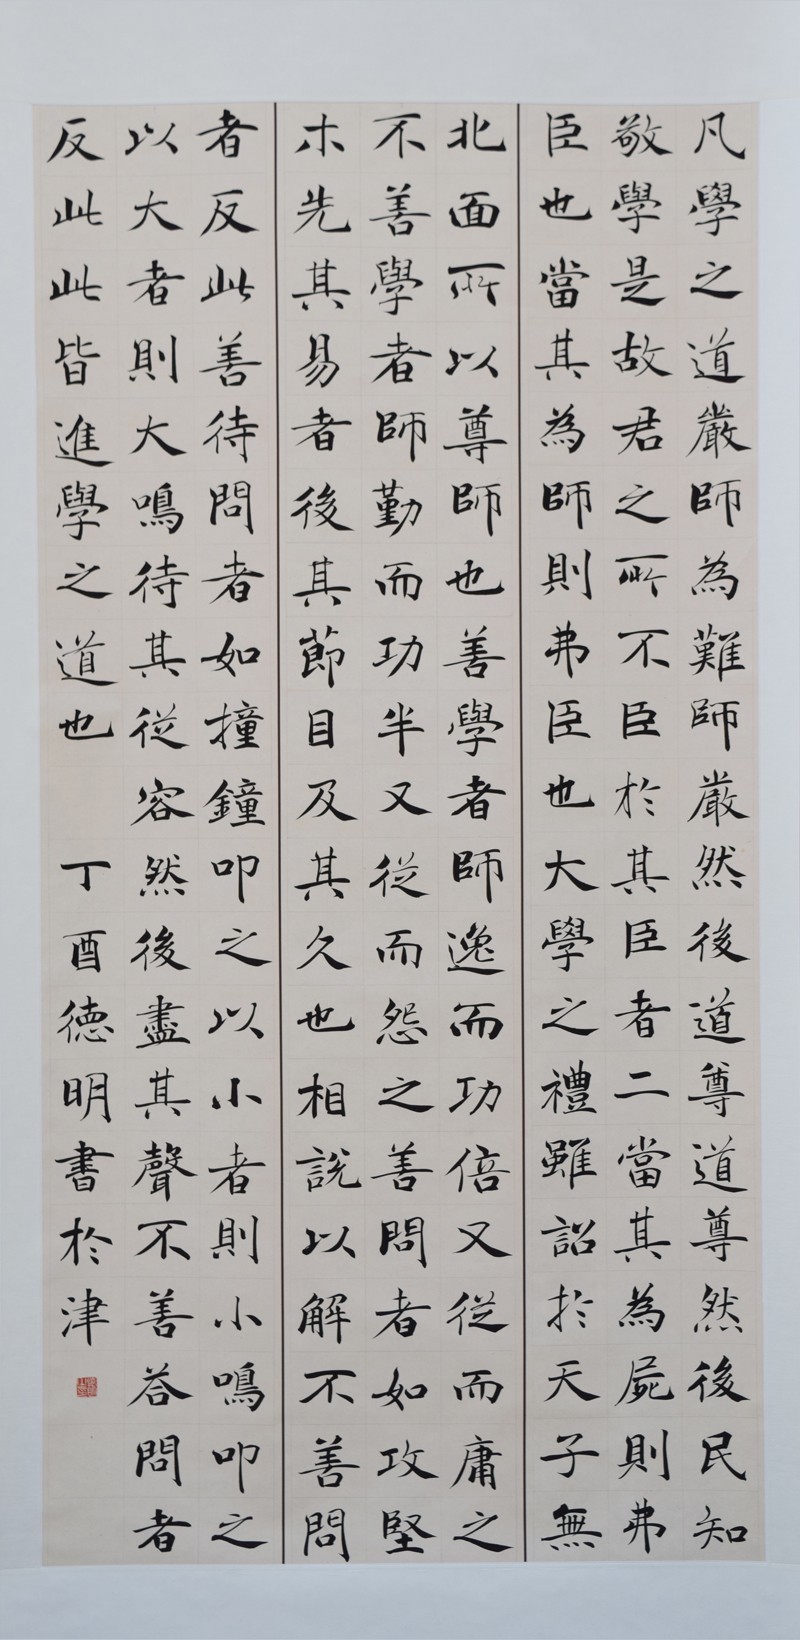 凡學之道嚴師為難師嚴然後道尊道尊然後民知
敬學是故君之所不臣於其臣者二當其為屍則弗
臣也當其為師則弗臣也大學之禮雖詔於天子無
北面所以尊師也善學者師逸而功倍又從而庸之
不善學者師勤而功半又從而怨之善問者如攻堅
木先其易者後其節目及其久也相說以解不善問
者反此善待問者如撞鐘叩之以小者則小鳴叩之
以大者則大鳴待其從容然後盡其聲不善荅問者
反此此皆進學之道也 丁酉德明書於津